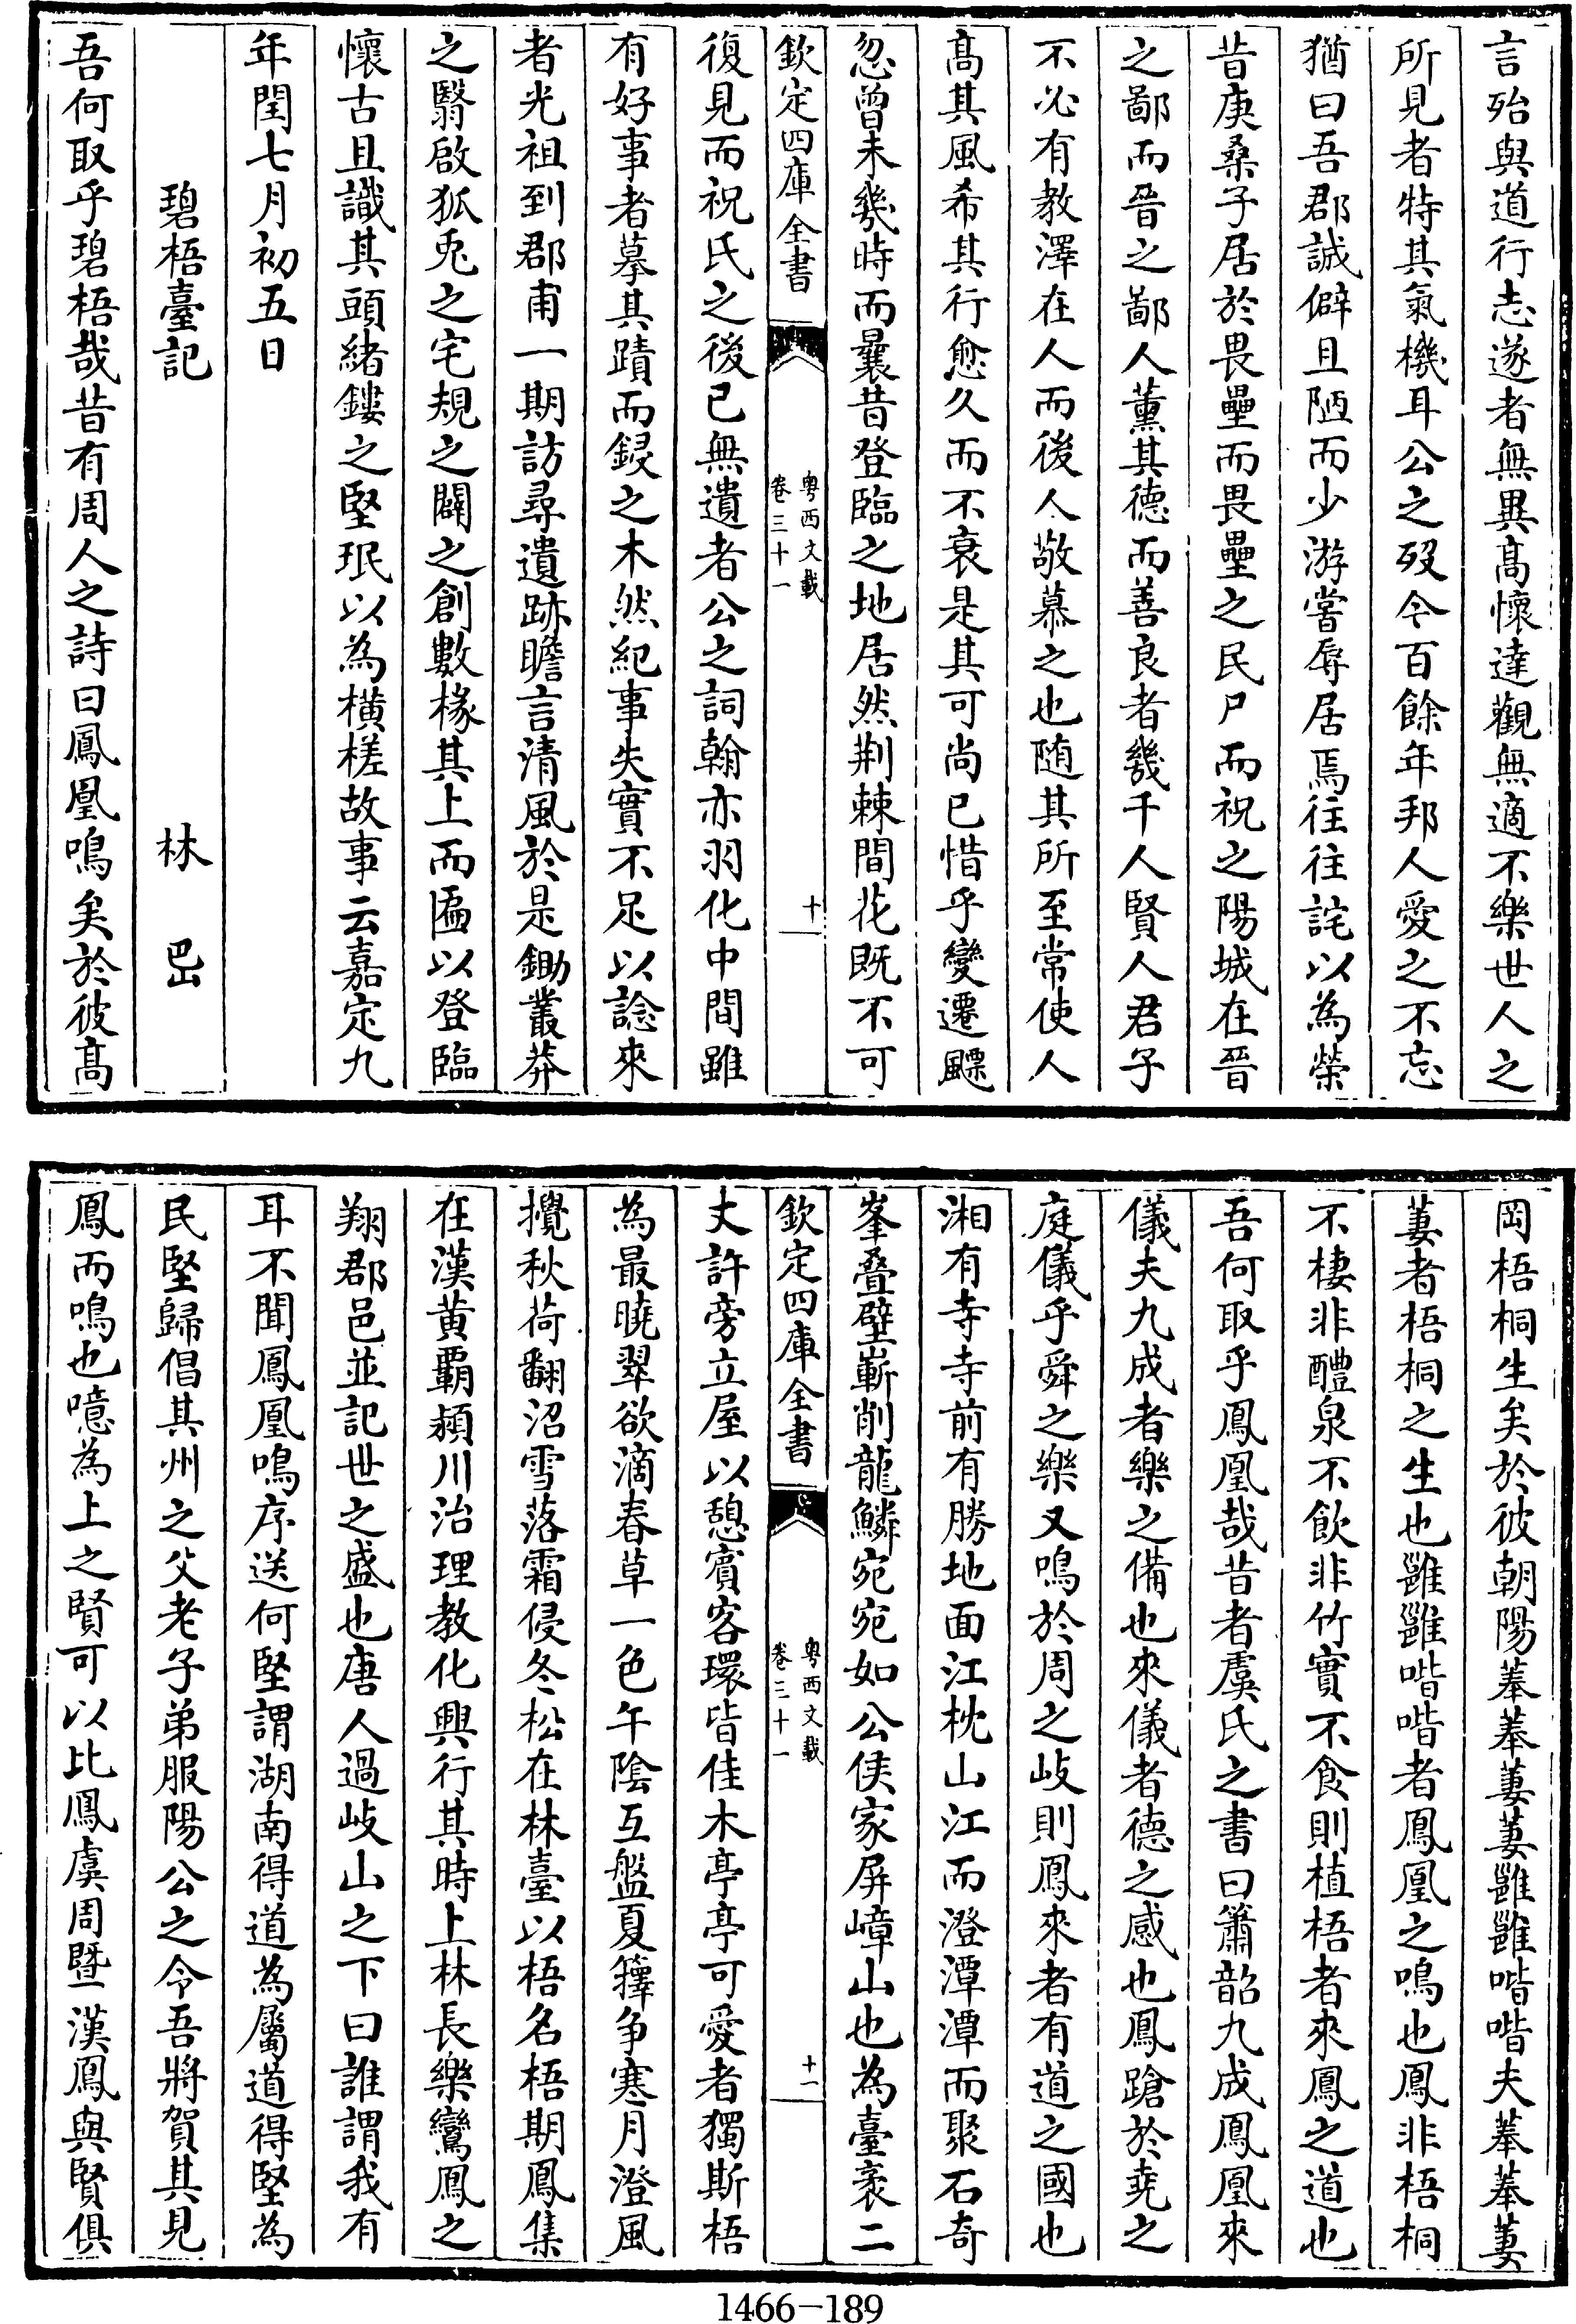 言殆與道行志遂者無異髙懷達觀無適不樂世人之
所見者特其氣機耳公之歿今百餘年邦人愛之不忘
猶曰吾郡誠僻且陋而少游嘗辱居焉往往詫以為榮
昔庚桑子居於畏壘而畏壘之民尸而祝之陽城在晉
之鄙而晉之鄙人薰其德而善良者幾千人賢人君子
不必有教澤在人而後人敬慕之也随其所至常使人
髙其風希其行愈久而不衰是其可尚已惜乎變遷飄
忽曾未幾時而曩昔登臨之地居然荆棘間花既不可
欽定四庫全書
粤西文載
卷三十一
十
復見而祝氏之後已無遺者公之詞翰亦羽化中間雖
有好事者摹其蹟而鋟之木然紀事失實不足以諗來
者光祖到郡甫一期訪尋遺跡瞻言清風於是鋤叢莽
之翳啟狐兎之宅規之闢之創數椽其上而匾以登臨
懷古且識其頭緒鏤之堅珉以為横槎故事云嘉定九
年閏七月初五日
碧梧臺記 林岊
吾何取乎碧梧哉昔有周人之詩曰鳳凰鳴矣於彼髙
岡梧桐生矣於彼朝陽菶菶萋萋雝雝喈喈夫菶菶萋
萋者梧桐之生也雝雝喈喈者鳳凰之鳴也鳳非梧桐
不棲非醴泉不飲非竹實不食則植梧者來鳳之道也
吾何取乎鳳凰哉昔者虞氏之書曰簫韶九成鳳凰來
儀夫九成者樂之備也來儀者德之感也鳳蹌於堯之
庭儀乎舜之樂又鳴於周之岐則鳳來者有道之國也
湘有寺寺前有勝地面江枕山江而澄潭潭而聚石奇
峯叠壁嶄削龍鱗宛宛如公侯家屏嶂山也為臺袤二
欽定四庫全書
粤西文載
卷三十一
十一
丈許旁立屋以憩賓客環皆佳木亭亭可愛者獨斯梧
為最曉翠欲滴春草一色午陰互盤夏籜争寒月澄風
攪秋荷翻沼雪落霜侵冬松在林臺以梧名梧期鳳集
在漢黄霸潁川治理教化興行其時上林長樂鸞鳳之
翔郡邑並記世之盛也唐人過岐山之下曰誰謂我有
耳不聞鳳凰鳴序送何堅謂湖南得道為屬道得堅為
民堅歸倡其州之父老子弟服陽公之令吾將賀其見
鳳而鳴也噫為上之賢可以比鳳虞周暨漢鳳與賢俱
1466-189